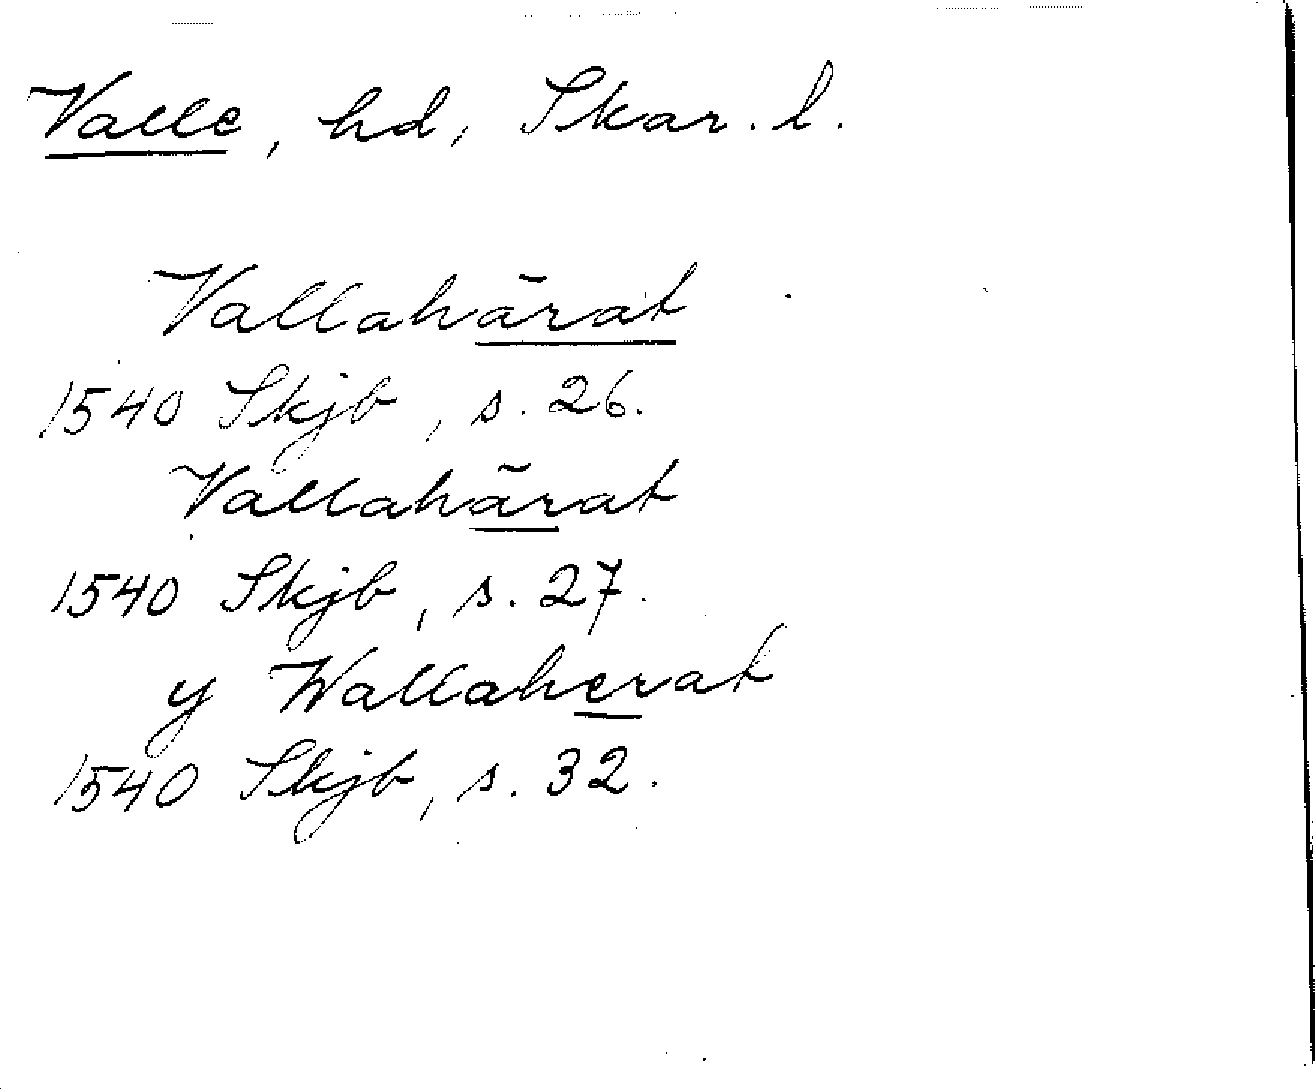 Valle, hd, Skar. l.
Vallahärat
1540 Skjb, s. 26.
Vallahärat
1540 Skjb, s. 27.
y Wallaherat
1540 Skjb, s. 32.